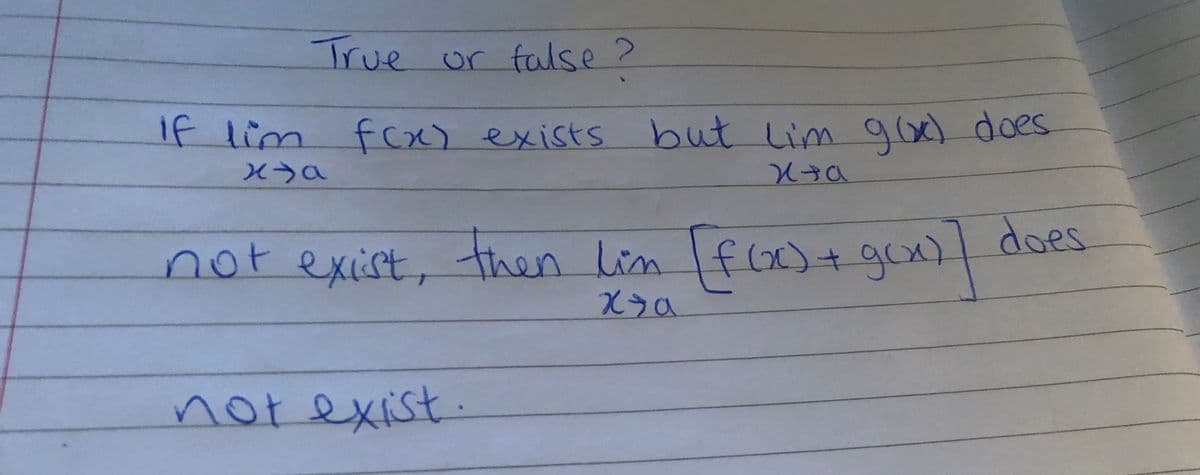 True or false?
If lim f(x) exists but lim g(x) does
x→a x→a
not exist, then lim [f(x) + g(x)] does
x→a
not exist.